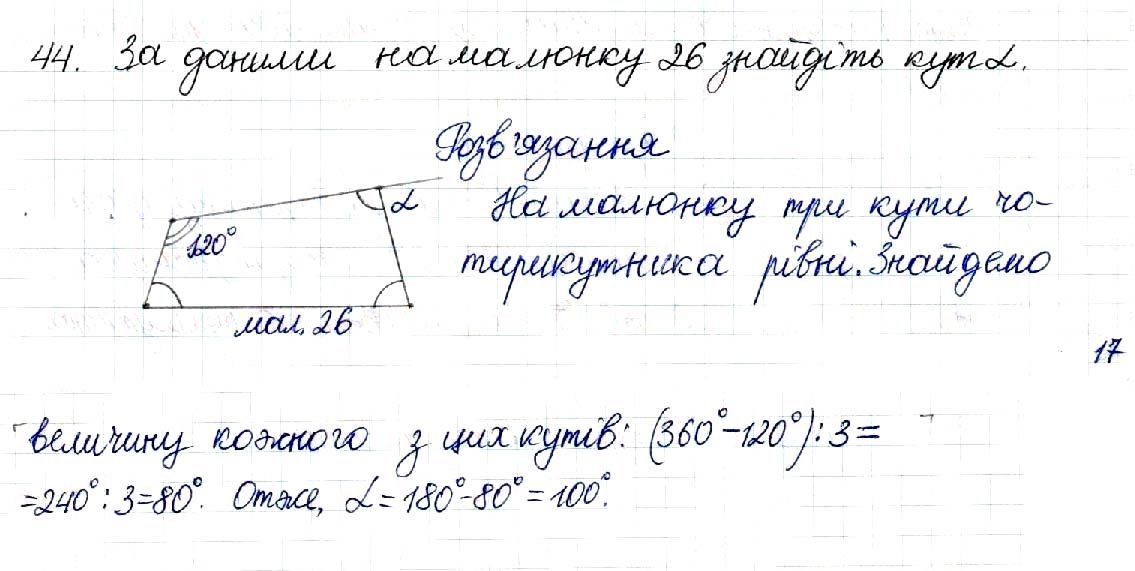 44. За даними на малюнку 26 знайдіть кут α.
Розв'язання
120°
α
мал. 26
На малюнку три кути чо-
тирикутника рівні. Знайдемо
17
величину кожного з цих кутів: (360°-120°):3=
=240°:3=80°. Отже, α=180°-80°=100°.